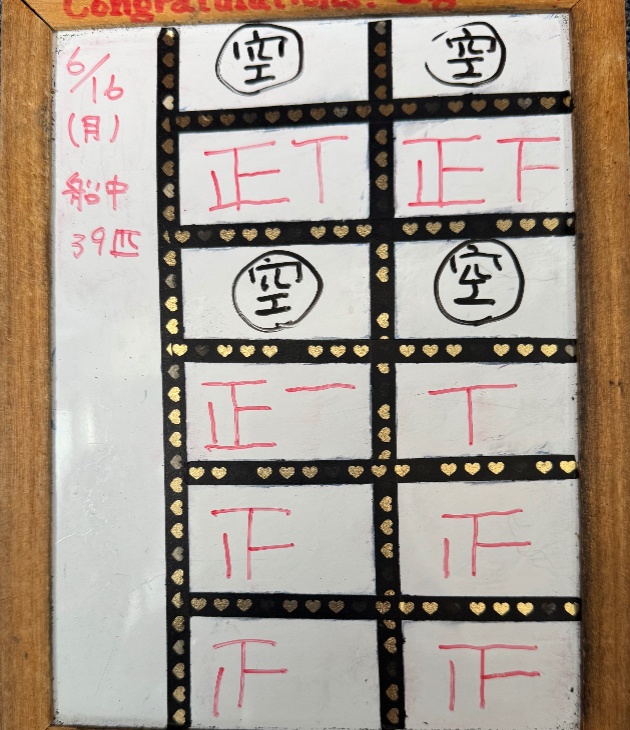 Congratulations!
6/16
(月)
船中
39匹
空 空
正丅 正下
空 空
正一 丅
𝍵 𝍵
𝍵 𝍵